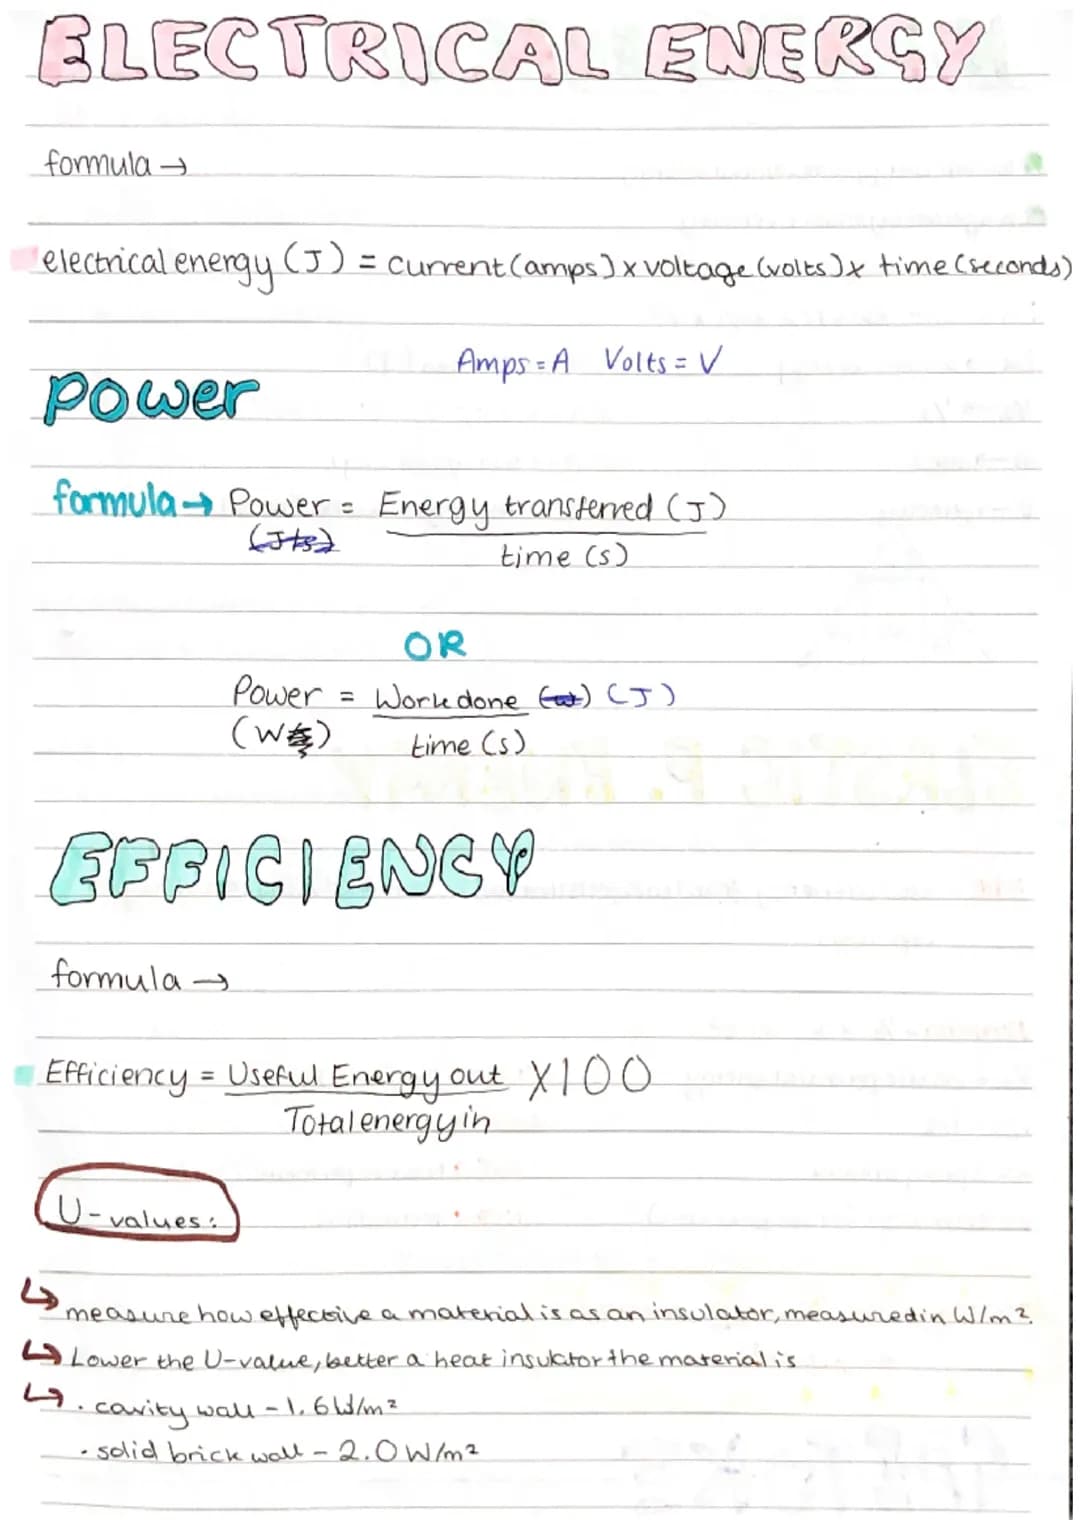 ELECTRICAL ENERGY
formula →
electrical energy (J) = current (amps) x voltage (volts) x time (seconds)
Amps = A Volts = V
Power
formula → Power = Energy transferred (J)
(J/s) time (s)
OR
Power = Work done (w) (J)
(W) time (s)
EFFICIENCY
formula →
Efficiency = Useful Energy out X100
Total energy in
U-values:
↳ measure how effective a material is as an insulator, measured in W/m².
↳ Lower the U-value, better a heat insulator the material is
↳ • cavity wall - 1.6W/m²
• solid brick wall - 2.0 W/m²